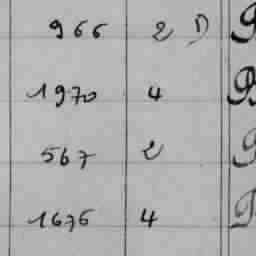 966 2 D
1970 4
567 2
1676 4